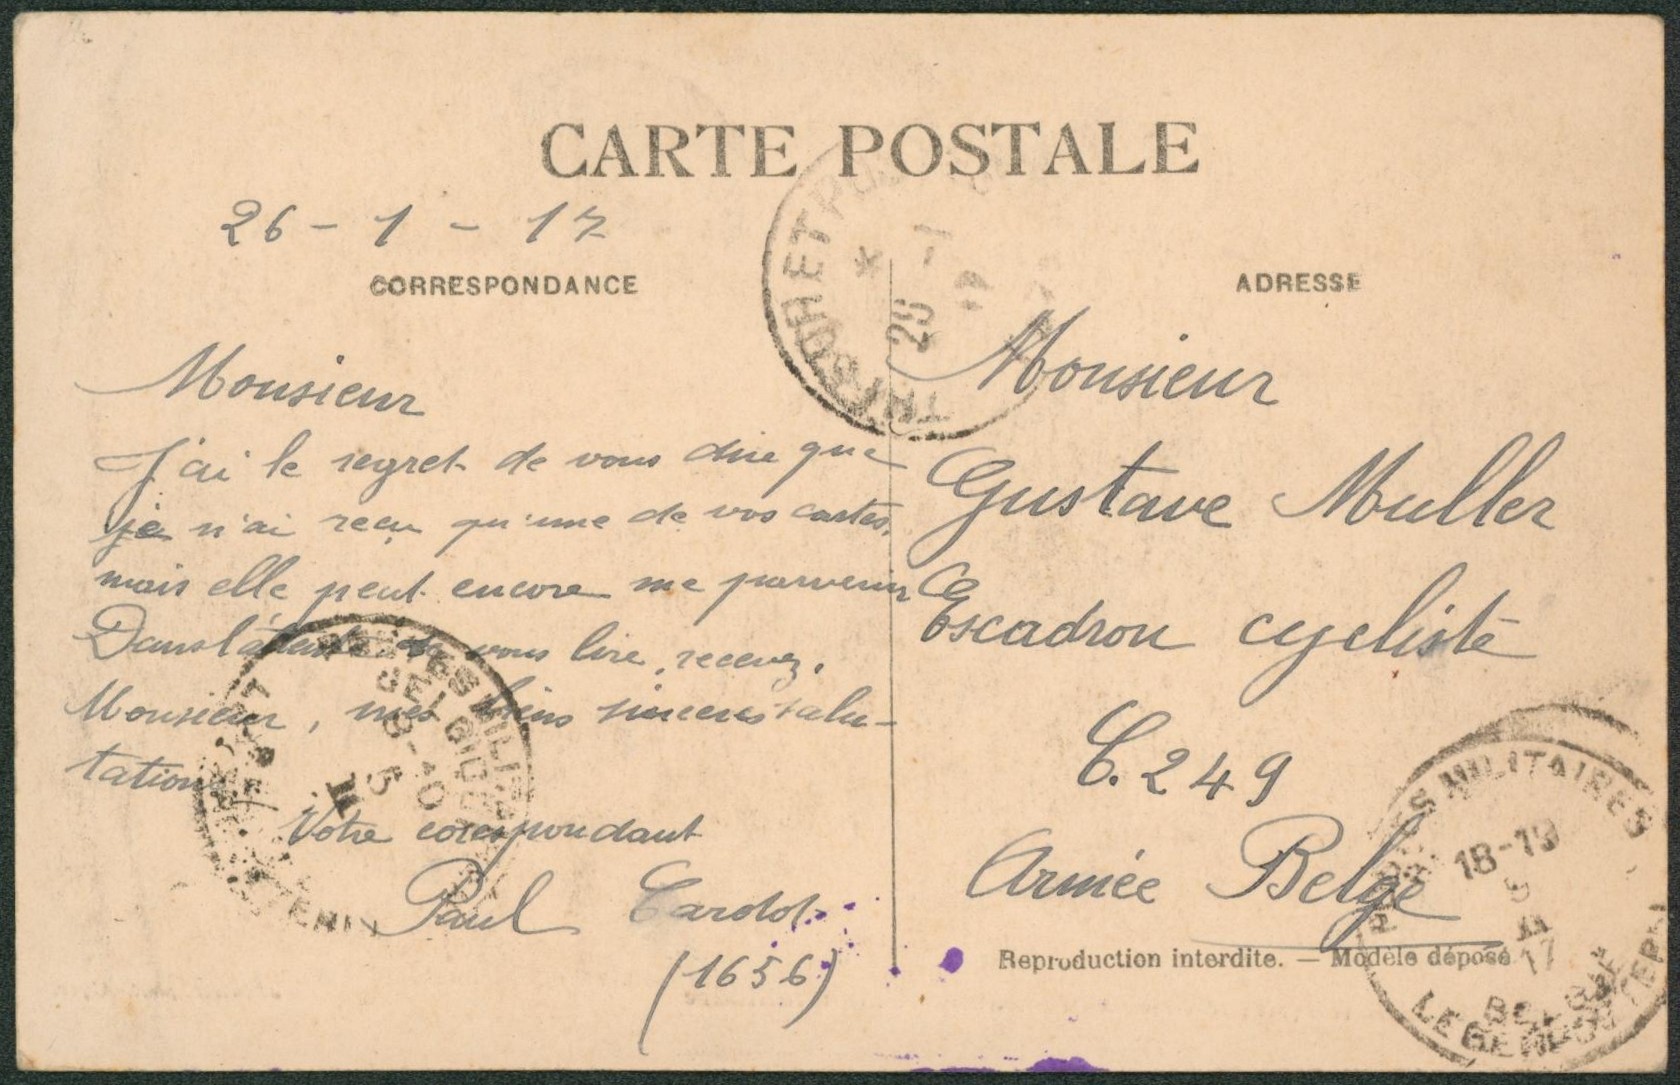 CARTE POSTALE
26 - 1 - 17
CORRESPONDANCE
Monsieur
J'ai le regret de vous dire que
je n'ai reçu qu'une de vos cartes,
mais elle peut encore me parvenir
Dans l'attente de vous lire, recevez,
Monsieur, mes biens sincères salu-
tations
Votre correspondant
Paul Cardot
(1656)
ADRESSE
Monsieur
Gustave Muller
Escadron cycliste
C. 249
Armée Belge
Reproduction interdite. — Modèle déposé
TRESOR ET POSTES
* 26 -1
POSTES MILITAIRES
BELGIQUE
9-10
5
II
POSTES MILITAIRES
18-19
II
17